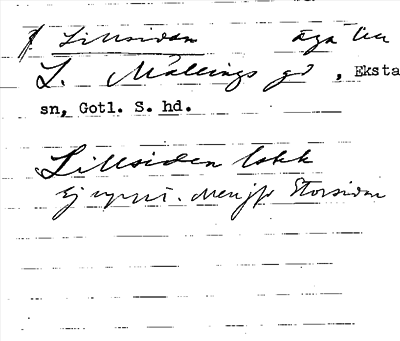 Lillsidan äga till
L. Mällings gd, Eksta
sn, Gotl. S. hd.
Lillsidan lokk
Ej uppt. Men jfr Storsidan